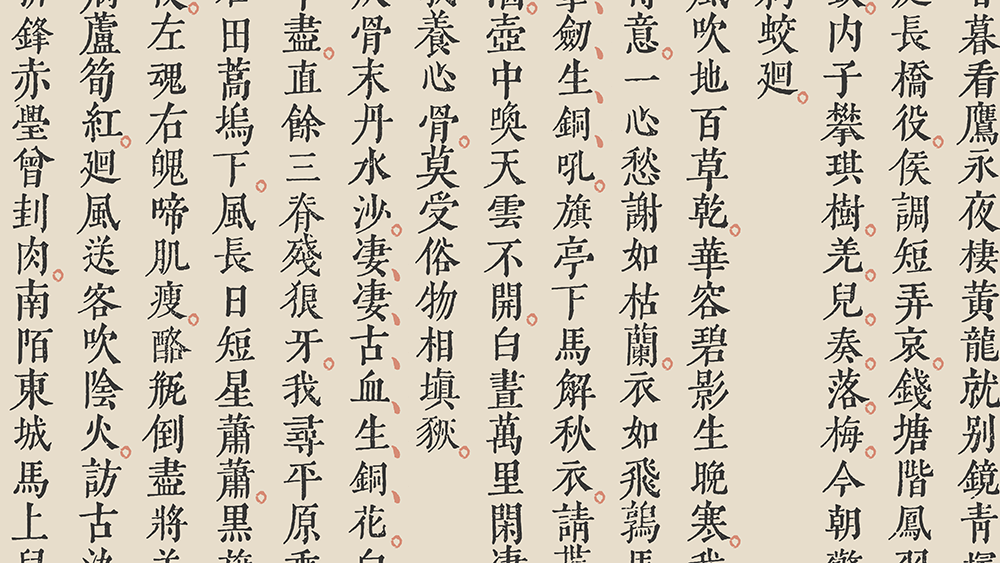 暮看鷹永夜棲黃龍就別鏡青
長橋役。侯調短弄哀。錢塘階鳳羽
內子攀琪樹。羌。兒。奏。落。梅。今朝擎
蛟廻。
風吹地百草乾。華容碧影生晚寒。我
意。一心愁謝如枯蘭。衣如飛鶉馬
劒、生、銅、吼。旗亭下馬解秋衣。請貰
壺中喚天雲不開。白晝萬里閑淒
養心骨。莫受俗物相塡豗。
骨末丹水沙。淒、淒、古、血、生、銅、花。白
盡。直餘三脊殘狼牙。我尋平原乘
田蒿塢下。風長日短星蕭蕭。黑旗
左魂右魄啼肌瘦。酪瓶倒盡將羊
蘆筍紅。廻風送客吹陰火。訪古
鋒赤璺曾刲肉。南陌東城馬上兒